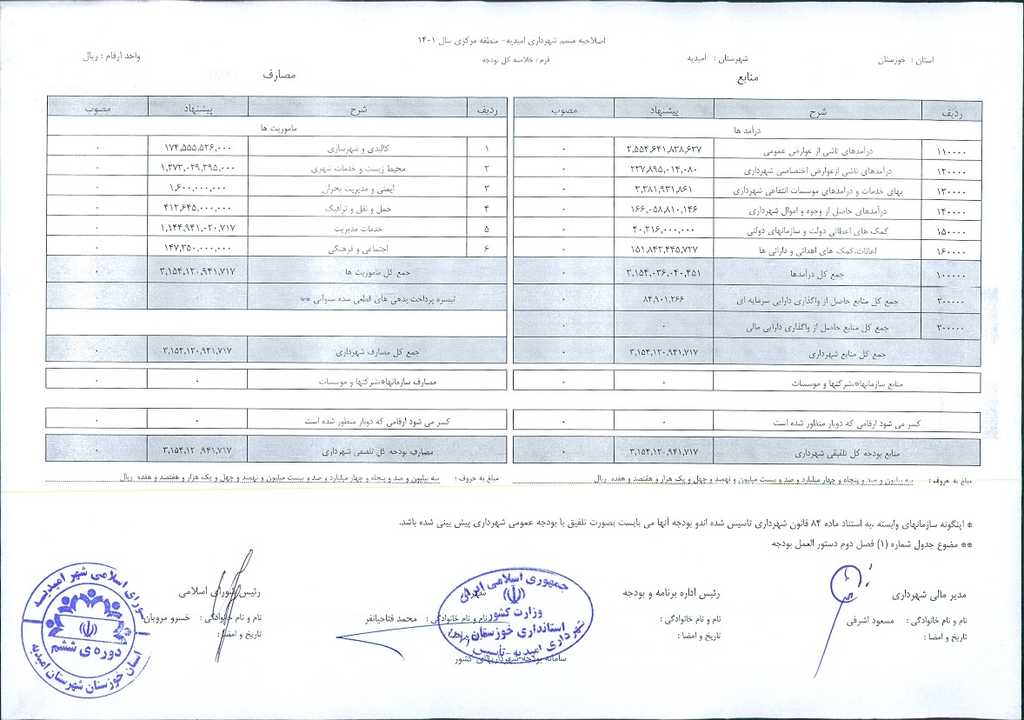 اصلاحیه متمم شهرداری امیدیه- منطقه مرکزی سال ۱۴۰۱
استان : خوزستان شهرستان : امیدیه فرم : خلاصه کل بودجه واحد ارقام : ریال
منابع
ردیف شرح پیشنهاد مصوب
درآمد ها
۱۱۰۰۰۰ درآمدهای ناشی از عوارض عمومی ۲,۵۵۴,۶۴۱,۸۳۸,۶۳۷ ۰
۱۲۰۰۰۰ درآمدهای ناشی ازعوارض اختصاصی شهرداری ۲۳۷,۸۹۵,۰۱۴,۰۸۰ ۰
۱۳۰۰۰۰ بهای خدمات و درآمدهای موسسات انتفاعی شهرداری ۳,۳۸۱,۹۳۱,۸۶۱ ۰
۱۴۰۰۰۰ درآمدهای حاصل از وجوه و اموال شهرداری ۱۶۶,۰۵۸,۸۱۰,۱۴۶ ۰
۱۵۰۰۰۰ کمک های اعطائی دولت و سازمانهای دولتی ۴۰,۲۱۶,۰۰۰,۰۰۰ ۰
۱۶۰۰۰۰ اعانات،کمک های اهدائی و دارائی ها ۱۵۱,۸۴۲,۴۴۵,۷۲۷ ۰
۱۰۰۰۰۰ جمع کل درآمدها ۳,۱۵۴,۰۳۶,۰۴۰,۴۵۱ ۰
۲۰۰۰۰۰ جمع کل منابع حاصل از واگذاری دارایی سرمایه ای ۸۴,۹۰۱,۲۶۶ ۰
۳۰۰۰۰۰ جمع کل منابع حاصل از واگذاری دارایی مالی ۰ ۰
جمع کل منابع شهرداری ۳,۱۵۴,۱۲۰,۹۴۱,۷۱۷ ۰
منابع سازمانها*،شرکتها و موسسات ۰ ۰
کسر می شود ارقامی که دوبار منظور شده است ۰ ۰
منابع بودجه کل تلفیقی شهرداری ۳,۱۵۴,۱۲۰,۹۴۱,۷۱۷ ۰
مبلغ به حروف : سه بیلیون و صد و پنجاه و چهار میلیارد و صد و بیست میلیون و نهصد و چهل و یک هزار و هفتصد و هفده ریال
مصارف
ردیف شرح پیشنهاد مصوب
ماموریت ها
۱ کالبدی و شهرسازی ۱۷۴,۵۵۵,۵۲۶,۰۰۰ ۰
۲ محیط زیست و خدمات شهری ۱,۲۷۳,۰۲۹,۳۹۵,۰۰۰ ۰
۳ ایمنی و مدیریت بحران ۱,۶۰۰,۰۰۰,۰۰۰ ۰
۴ حمل و نقل و ترافیک ۴۱۲,۶۴۵,۰۰۰,۰۰۰ ۰
۵ خدمات مدیریت ۱,۱۴۴,۹۴۱,۰۲۰,۷۱۷ ۰
۶ اجتماعی و فرهنگی ۱۴۷,۳۵۰,۰۰۰,۰۰۰ ۰
جمع کل ماموریت ها ۳,۱۵۴,۱۲۰,۹۴۱,۷۱۷ ۰
تبصره پرداخت بدهی های قطعی شده سنواتی **
جمع کل مصارف شهرداری ۳,۱۵۴,۱۲۰,۹۴۱,۷۱۷ ۰
مصارف سازمانها*،شرکتها و موسسات ۰ ۰
کسر می شود ارقامی که دوبار منظور شده است ۰ ۰
مصارف بودجه کل تلفیقی شهرداری ۳,۱۵۴,۱۲۰,۹۴۱,۷۱۷ ۰
مبلغ به حروف : سه بیلیون و صد و پنجاه و چهار میلیارد و صد و بیست میلیون و نهصد و چهل و یک هزار و هفتصد و هفده ریال
* اینگونه سازمانهای وابسته ،به استناد ماده ۸۴ قانون شهرداری تاسیس شده اندو بودجه آنها می بایست بصورت تلفیق با بودجه عمومی شهرداری پیش بینی شده باشد.
** مضوع جدول شماره (۱) فصل دوم دستور العمل بودجه
مدیر مالی شهرداری
نام و نام خانوادگی : مسعود اشرفی
تاریخ و امضا :
رئیس اداره برنامه و بودجه
نام و نام خانوادگی :
تاریخ و امضا :
نام و نام خانوادگی : محمد فتاحیانفر
جمهوری اسلامی ایران
وزارت کشور
استانداری خوزستان
شهرداری امیدیه-تأسیس
سامانه بودجه شهرداریهای کشور
رئیس شورای اسلامی
نام و نام خانوادگی : خسرو مرویان
تاریخ و امضا :
شورای اسلامی شهر امیدیه
دوره ی ششم
استان خوزستان شهرستان امیدیه